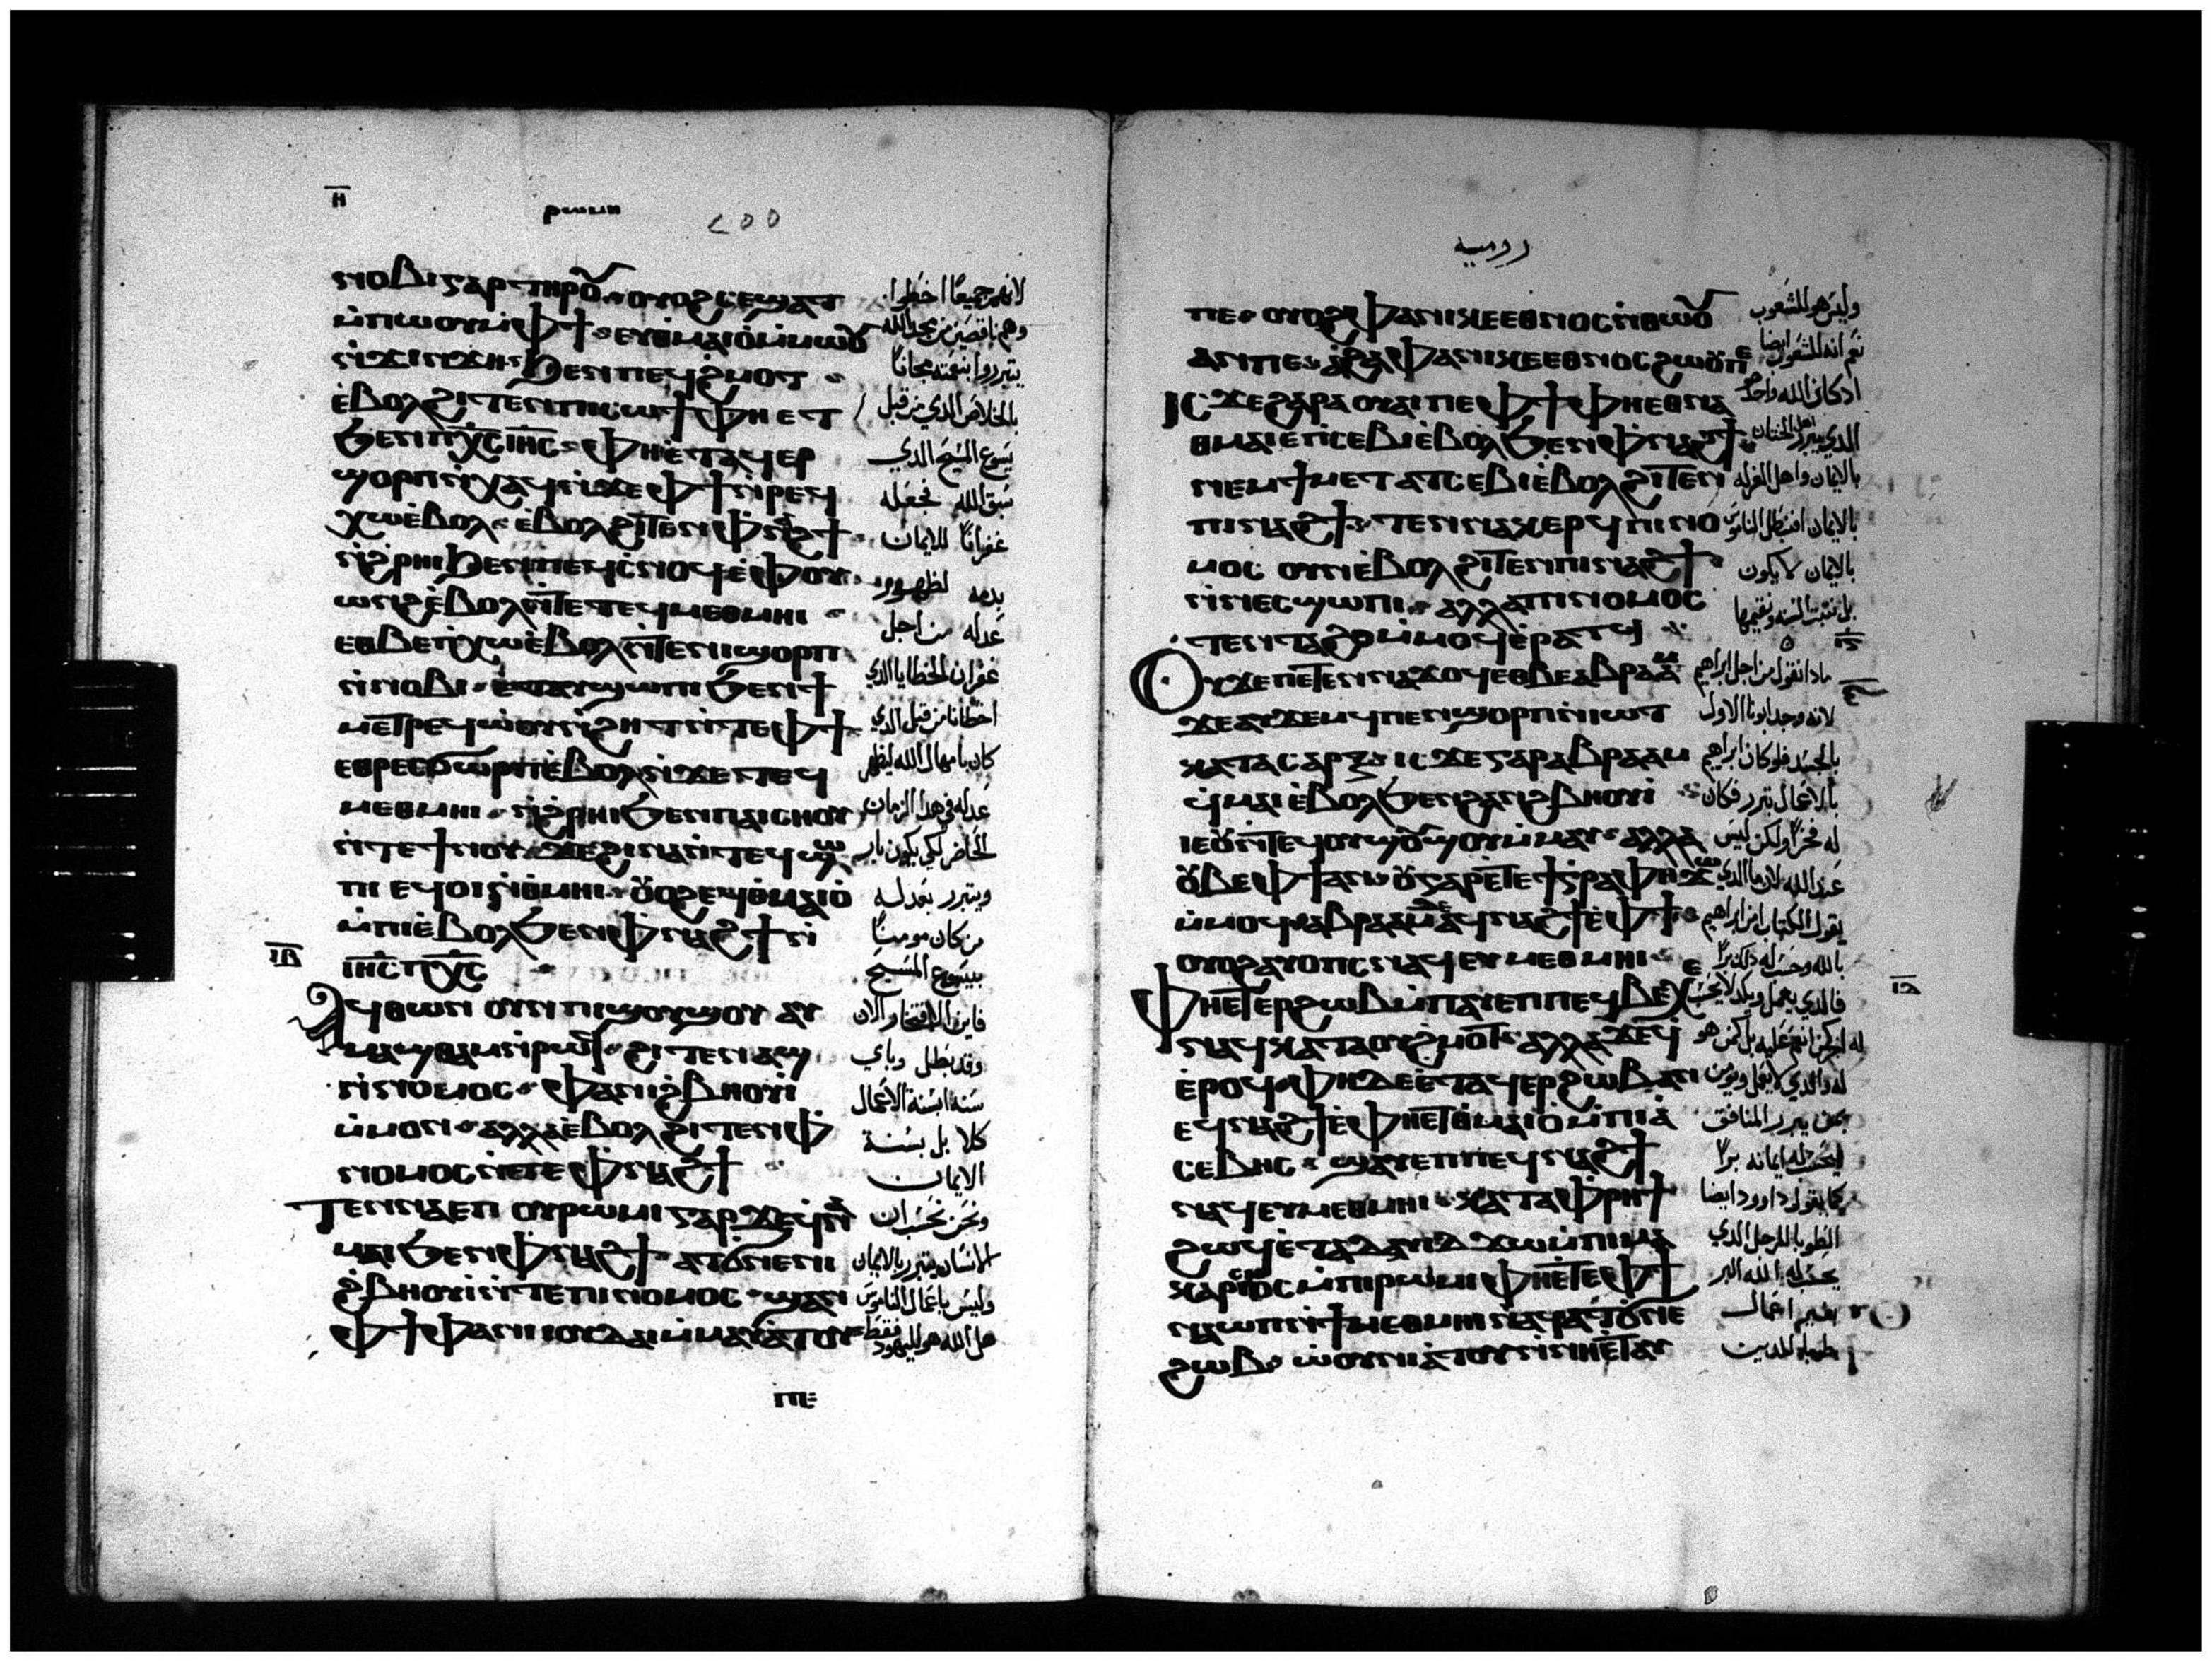 ⲏ̅
ⲣⲱⲙⲏ
ⲛⲟⲃⲓ ⲅⲁⲣ ⲧⲏⲣⲟⲩ ⲟⲩⲟϩ ⲥⲉϣⲁⲧ
ⲙ̀ⲡⲱⲟⲩ ⲙ̀ⲫϯ ⲉⲩⲑⲙⲁⲓⲟ ⲙ̀ⲙⲱⲟⲩ
ⲛ̀ϫⲓⲛϫⲏ ϧⲉⲛ ⲡⲉϥϩ̀ⲙⲟⲧ
ⲉ̀ⲃⲟⲗ ϩⲓⲧⲉⲛ ⲡⲓⲥⲱϯ ⲫⲏ ⲉⲧ
ϧⲉⲛ ⲡⲭ̅ⲥ̅ ⲓⲏ̅ⲥ̅ ⲫⲏ ⲉ̀ⲧⲁϥⲉⲣ
ϣⲟⲣⲡ ⲛ̀ⲭⲁϥ ⲛ̀ϫⲉ ⲫϯ ⲛ̀ⲣⲉϥ
ⲭⲱ ⲉ̀ⲃⲟⲗ ⲉ̀ⲃⲟⲗ ϩⲓⲧⲉⲛ ⲫⲛⲁϩϯ
ⲛ̀ϩ̀ⲣⲏⲓ ϧⲉⲛ ⲡⲉϥⲥⲛⲟϥ ⲉ̀ⲫⲟⲩ
ⲱⲛϩ ⲉ̀ⲃⲟⲗ ⲛ̀ⲧⲉ ⲧⲉϥⲙⲉⲑⲙⲏⲓ
ⲉⲑⲃⲉ ⲡⲓⲭⲱ ⲉ̀ⲃⲟⲗ ⲛ̀ⲧⲉ ⲛⲓϣⲟⲣⲡ
ⲛ̀ⲛⲟⲃⲓ ⲉⲧⲁⲩϣⲱⲡⲓ ϧⲉⲛ ϯ
ⲙⲉⲧⲣⲉϥⲱ̀ⲟⲩⲛ̀ϩⲏⲧ ⲛ̀ⲧⲉ ⲫϯ
ⲉⲑⲣⲉⲥϭⲱⲣⲡ ⲉ̀ⲃⲟⲗ ⲛ̀ϫⲉ ⲧⲉϥ
ⲙⲉⲑⲙⲏⲓ ⲛ̀ϩ̀ⲣⲏⲓ ϧⲉⲛ ⲡⲁⲓⲥⲏⲟⲩ
ⲛ̀ⲧⲉ ϯⲛⲟⲩ ϫⲉ ϩⲓⲛⲁ ⲛ̀ⲧⲉϥϣⲱ
ⲡⲓ ⲉϥⲟⲓ ⲛ̀ⲑⲙⲏⲓ ⲟⲩⲟϩ ⲉϥⲑⲙⲁⲓⲟ̀
ⲙ̀ⲡⲓⲉ̀ⲃⲟⲗ ϧⲉⲛ ⲫⲛⲁϩϯ ⲛ̀
ⲓⲏ̅ⲥ̅ ⲡⲭ̅ⲥ̅
ⲓ̅ⲃ̅
ⲁϥⲑⲱⲛ ⲟⲩⲛ ⲡⲓϣⲟⲩϣⲟⲩ ⲁⲩ
ⲙⲁϣⲑⲁⲙ ⲛ̀ⲣⲱϥ ϩⲓⲧⲉⲛ ⲁϣ
ⲛ̀ⲛⲟⲙⲟⲥ ⲫⲁ ⲛⲓϩ̀ⲃⲏⲟⲩⲓ
ⲙ̀ⲙⲟⲛ ⲁⲗⲗⲁ ⲉ̀ⲃⲟⲗ ϩⲓⲧⲉⲛ ⲫ̀
ⲛⲟⲙⲟⲥ ⲛ̀ⲧⲉ ⲫⲛⲁϩϯ
ⲧⲉⲛⲛⲁⲉⲡ ⲟⲩⲣⲱⲙⲓ ⲅⲁⲣ ϫⲉ ϥⲛⲁ
ⲙⲁⲓ ϧⲉⲛ ⲫⲛⲁϩϯ ⲁⲧϭⲛⲉ ⲛⲓ
ϩ̀ⲃⲏⲟⲩⲓ ⲛ̀ⲧⲉ ⲡⲓⲛⲟⲙⲟⲥ ϣⲁⲛ
ⲫϯ ⲫⲁ ⲛⲓⲓⲟⲩⲇⲁⲓ ⲙ̀ⲙⲁⲩⲁⲧⲟⲩ
ⲡⲉ
لانهم جميعًا اخطوا
وهم ناقصين من مجد الله
يتبرروا بنعمته مجانًا
بالخلاص الذي من قبل
يسوع المسيح الدي
سبق الله فجعله
غفرانًا للايمان
بدمه لظهور
عدله من اجل
غفران الخطايا الدي
اخطانا من قبل الدي
كان بامهال الله ليظهر
عدله في هدا الزمان
الحاضر لكي يكون بار
ويتبرر بعدله
من كان مومنًا
بيسوع المسيح
فاين الافتخار الان
وقد بطل وباي
سنه ابسنة الاعمال
كلا بل بسنة
الايمان
ونحن نحسب ان
الانسان يتبرر بالايمان
وليس باعمال الناموس
هل الله هو لليهود فقط
روميه
ⲡⲉ ⲟⲩⲟϩ ⲫⲁ ⲛⲓⲕⲉⲉⲑⲛⲟⲥ ⲛ̀ⲑⲱⲟⲩ
ⲁⲛ ⲡⲉ ⲁϩⲁ ⲫⲁ ⲛⲓⲕⲉⲉⲑⲛⲟⲥ ϩⲱⲟⲩ ⲡⲉ
ⲓⲥϫⲉ ⲅⲁⲣ ⲁ ⲟⲩⲁⲓ ⲡⲉ ⲫϯ ⲫⲏ ⲉⲑⲛⲁ
ⲑⲙⲁⲓⲉ ⲡⲥⲉⲃⲓ ⲉ̀ⲃⲟⲗ ϧⲉⲛ ⲫⲛⲁϩϯ
ⲛⲉⲙ ϯⲙⲉⲧⲁⲧⲥⲉⲃⲓ ⲉ̀ⲃⲟⲗ ϩⲓⲧⲉⲛ
ⲡⲓⲛⲁϩϯ ⲧⲉⲛⲛⲁⲕⲉⲣϥ ⲡⲓⲛⲟ
ⲙⲟⲥ ⲟⲩⲛ ⲉ̀ⲃⲟⲗ ϩⲓⲧⲉⲛ ⲡⲓⲛⲁϩϯ
ⲛ̀ⲛⲉⲥϣⲱⲡⲓ ⲁⲗⲗⲁ ⲡⲓⲛⲟⲙⲟⲥ
ⲧⲉⲛⲧⲁϩⲟ ⲙ̀ⲙⲟϥ ⲉ̀ⲣⲁⲧϥ
ⲟⲩ ϫⲉ ⲡⲉⲧⲉⲛⲛⲁϫⲟϥ ⲉⲑⲃⲉ ⲁⲃⲣⲁⲁⲙ
ϫⲉ ⲁⲩϫⲉⲙϥ ⲡⲉⲛϣⲟⲣⲡ ⲛ̀ⲓⲱⲧ
ⲕⲁⲧⲁ ⲥⲁⲣⲝ ⲓⲥϫⲉ ⲅⲁⲣ ⲁⲃⲣⲁⲁⲙ
ϥ̀ⲙⲁⲓ ⲉ̀ⲃⲟⲗ ϧⲉⲛ ϩⲁⲛϩⲃⲏⲟⲩⲓ
ⲓⲉ ⲟⲩⲛⲧⲉϥ ⲟⲩϣⲟⲩϣⲟⲩ ⲙ̀ⲙⲁⲩ ⲁⲗⲗⲁ
ⲟⲩⲃⲉ ⲫϯ ⲁⲛ ⲟⲩ ⲅⲁⲣ ⲉⲧⲉ ϯⲅⲣⲁⲫⲏ ϫⲱ
ⲙ̀ⲙⲟϥ ⲁⲃⲣⲁⲁⲙ ⲇⲉ ⲁϥⲛⲁϩϯ ⲉ̀ⲫϯ
ⲟⲩⲟϩ ⲁⲩⲟⲡⲥ ⲛⲁϥ ⲉⲩⲙⲉⲑⲙⲏⲓ
ⲫⲏ ⲉⲧⲉⲣϩⲱⲃ ⲙ̀ⲡⲁⲩⲉⲡ ⲡⲉϥⲃⲉⲭⲉ
ⲛⲁϥ ⲕⲁⲧⲁ ⲟⲩϩ̀ⲙⲟⲧ ⲁⲗⲗⲁ ϫⲉ ϥ
ⲉ̀ⲣⲟϥ ⲫⲏ ⲇⲉ ⲉ̀ⲧⲁϥⲉⲣϩⲱⲃ ⲁⲛ
ⲉϥⲛⲁϩϯ ⲉ̀ⲫⲏ ⲉⲧⲑⲙⲁⲓⲟ ⲙ̀ⲡⲓⲁ̀
ⲥⲉⲃⲏⲥ ϣⲁⲩⲉⲡ ⲡⲉϥⲛⲁϩϯ
ⲛⲁϥ ⲉⲩⲙⲉⲑⲙⲏⲓ ⲕⲁⲧⲁ ⲫ̀ⲣⲏϯ
ϩⲱϥ ⲉ̀ⲧⲁ ⲇⲁⲩⲓⲇ ϫⲱ ⲙ̀ⲡⲓⲙⲁ
ⲕⲁⲣⲓⲥⲙⲟⲥ ⲙ̀ⲡⲓⲣⲱⲙⲓ ⲫⲏ ⲉ̀ⲧⲉ ⲫϯ
ⲛⲁⲱⲡ ⲛ̀ϯⲙⲉⲑⲙⲏⲓ ⲛⲁϥ ⲁⲧϭⲛⲉ
ϩⲱⲃ ⲱ̀ⲟⲩⲛⲓⲁ̀ⲧⲟⲩ ⲛ̀ⲛⲏ ⲉ̀ⲧⲁⲩ
وليس هو للشعوب
نعم انه للشعوب ايضا
اد كان الله واحد
الدي يبرر اهل الختان
بالايمان واهل الغرله
بالايمان افنبطل الناموس
بالايمان لا يكون
بل نثبت السنه ونقيمها
مادا نقول من اجل ابراهيم
لانه وجد ابونا الاول
بالجسد فلو كان ابراهيم
بالاعمال تبرر فكان
له فخرًا ولكن ليس
عند الله لان ما الدي
يقول الكتاب امن ابراهيم
بالله وحسب له دلك برًا
ⲓ̅ⲇ̅
بمن يبرر المنافق
يحسب له ايمانه برًا
كما يقول داوود ايضا
الطوبا للرجل الدي
يحسب له الله البر
بغير اعمال
طوبا للدين